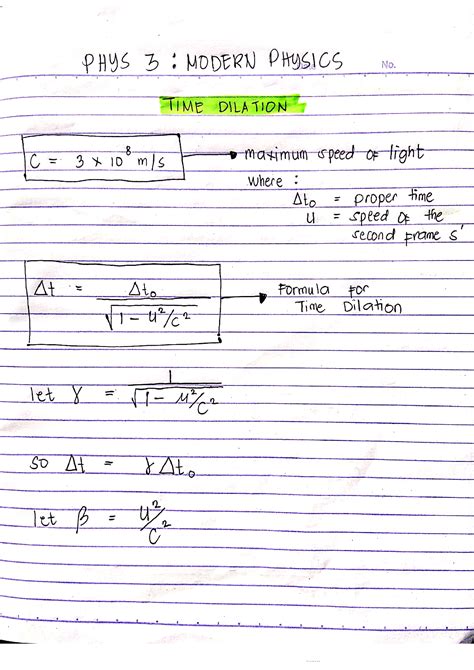 PHYS 3 : MODERN PHYSICS
No.
TIME DILATION
C = 3 × 10⁸ m/s → maximum speed of light
where :
Δt₀ = proper time
u = speed of the
second frame s'
Δt = Δt₀ / √(1 − u²/c²) → Formula for
Time Dilation
let γ = 1 / √(1 − u²/c²)
so Δt = γ Δt₀
let β = u²/c²